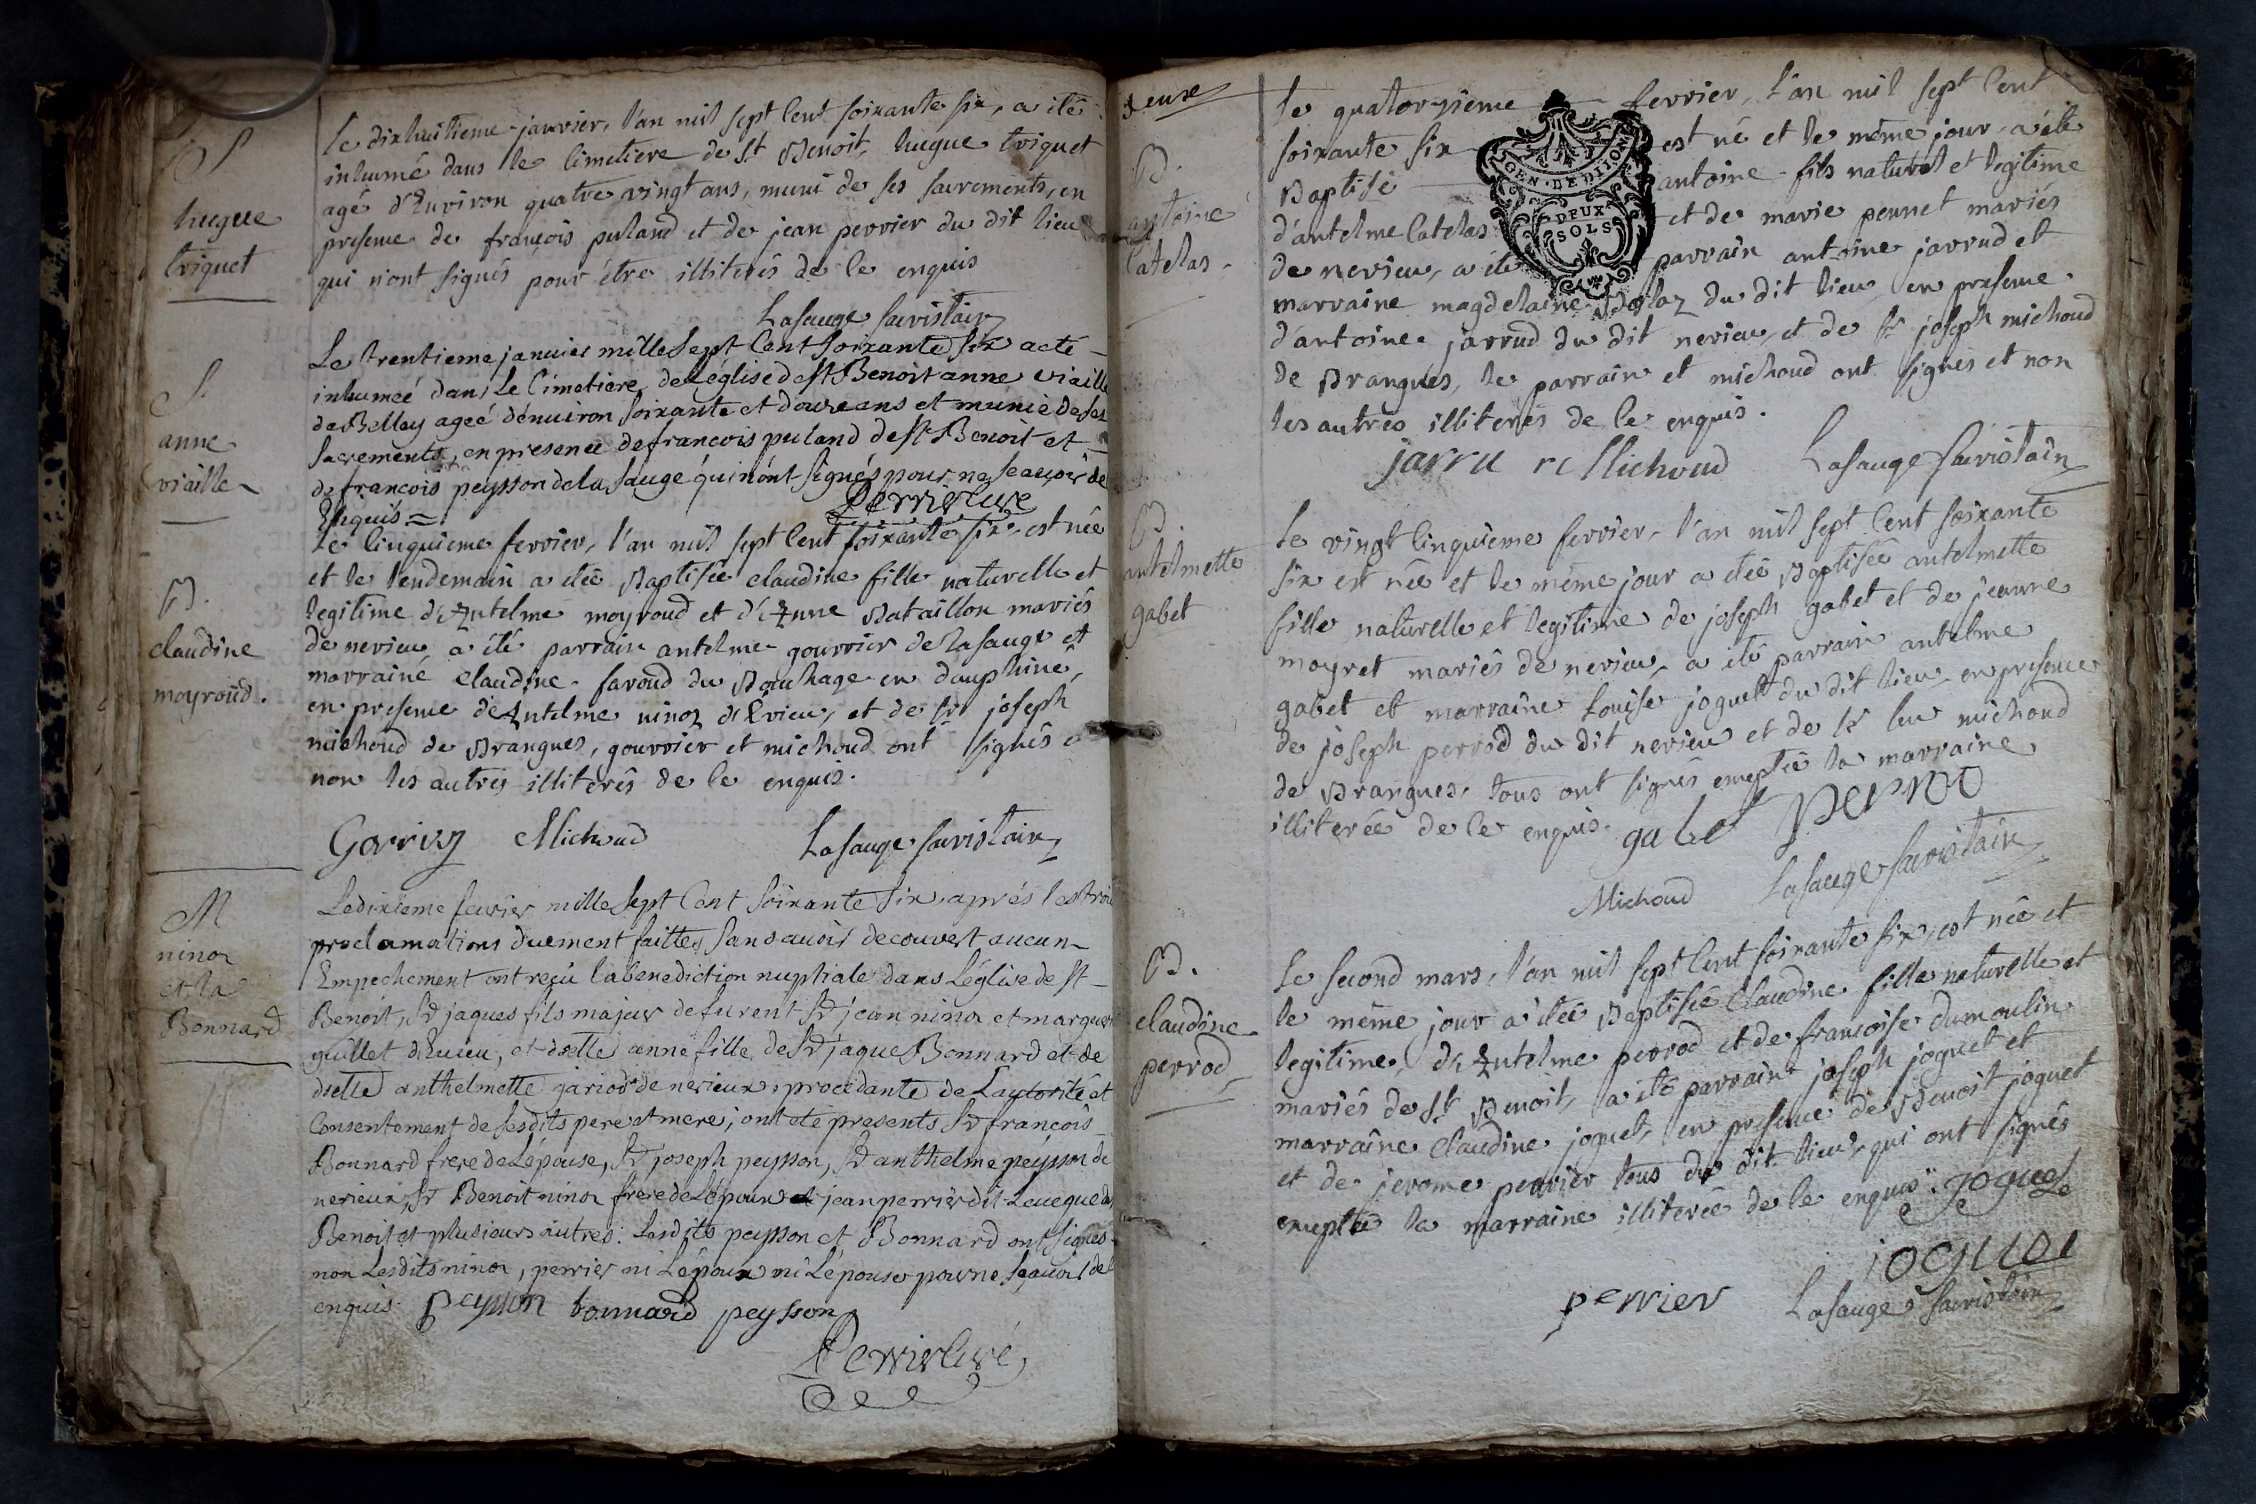 S
hugue
triquet
le dixhuitieme janvier, l'an mil sept Cent soixante six, a eté
inhumé dans le Cimetiere de St Benoit, hugue triquet
agé d'Environ quatre vingt ans, muni de ses sacrements, en
presence de françois puland et de jean perrier du dit lieu
qui n'ont signés pour être illiterés de ce enquis
Lasauge sacristain
S.
anne
viaille
Le trentieme janvier mille sept Cent soixante six a eté
inhumeé dans Le Cimetiere de L'église de st Benoit anne viaille
de Belley ageé d'enuiron soixante et douze ans et munie de ses
sacrements, en presence de francois puland de st Benoit et
de francois peysson de la sauge qui n'ont signés pour ne scauoir de
Enquis =
Perrier curé
B.
claudine
moyroud.
Le Cinquieme fevrier, l'an mil sept Cent soixante six, est née
et le lendemain a etée Baptisée claudine fille naturelle et
legitime d'Antelme moyroud et d'Anne Bataillon mariés
de nerieu, a été parrain antelme gourrier de lasauge et
marraine claudine favoud du Bouchage en dauphiné,
en presence d'Antelme ninoz d'Evieu, et de sr joseph
michoud de Brangues, gourrier et michoud ont signés
non les autres illiterés de ce enquis.
Michoud
Lasauge sacristain
M
ninoz
et la
Bonnard
Le dixieme fevrier mille sept Cent soixante six aprés les trois
proclamations duement faittes sans auoir decouvert aucun
Empechement ont reçu la benediction nuptiale dans L'église de st
Benoit, Sr jaques fils majeur de furent Sr jean ninoz et marguerit
guillet d'Euieu, et dselle anne fille de Sr jaque Bonnard et de
dselle anthelmette jariod de nerieux, procedante de L'autorité et
Consentement de sesdits pere et mere; ont eté presents Sr françois
Bonnard frere de L'épouse, Sr joseph peysson, Sr anthelme peysson de
nerieux, Sr Benoit ninoz frere de L'époux et jean perrier dit Leueque de
Benoit et plusieurs autres: Lesdits peysson et Bonnard ont signés
non Lesdits ninoz, perrier ni L'époux ni L'épouse pour ne sçauoir de
enquis. peysson bonnard peysson
Perrier curé
B.
antoine
Catelas.
le quatorzieme fevrier, l'an mil sept Cent
soixante six est né et le même jour a été
Baptisé antoine fils naturel et legitime
d'antelme Catelas et de marie peunet mariés
de nerieu, a été parrain antoine jarrud et
marraine magdelaine du dit lieu en presence
d'antoine jarrud du dit nerieu, et de sr joseph michoud
de Brangues, le parrain et michoud ont signés et non
les autres illiterés de ce enquis.
GEN. DE DIJON
DEUX
SOLS
jarru Michoud Lasauge sacristain
B.
antelmette
gabet
le vingt Cinquieme fevrier, l'an mil sept Cent soixante
six est née et le même jour a etée Baptisée antelmette
fille naturelle et legitime de joseph gabet et de jeanne
moyret mariés de nerieu, a été parrain antelme
gabet et marraine Louise joguet du dit lieu en presence
de joseph perrod du dit nerieu et de sr luc michoud
de Brangues, tous ont signés exceptée la marraine
illiterée de ce enquis. gabet perrod
Michoud Lasauge sacristain
B.
claudine
perrod
le second mars, l'an mil sept Cent soixante six, est née et
le même jour a etée Baptisée Claudine fille naturelle et
legitime d'Antelme perrod et de francoise dumoulin
mariés de St Benoit, a été parrain joseph joguet et
marraine Claudine joguet, en presence de Benoit joguet
et de jerome perrier tous du dit lieu, qui ont signés
exceptée la marraine illiterée de ce enquis. joguet
perrier Lasauge sacristain